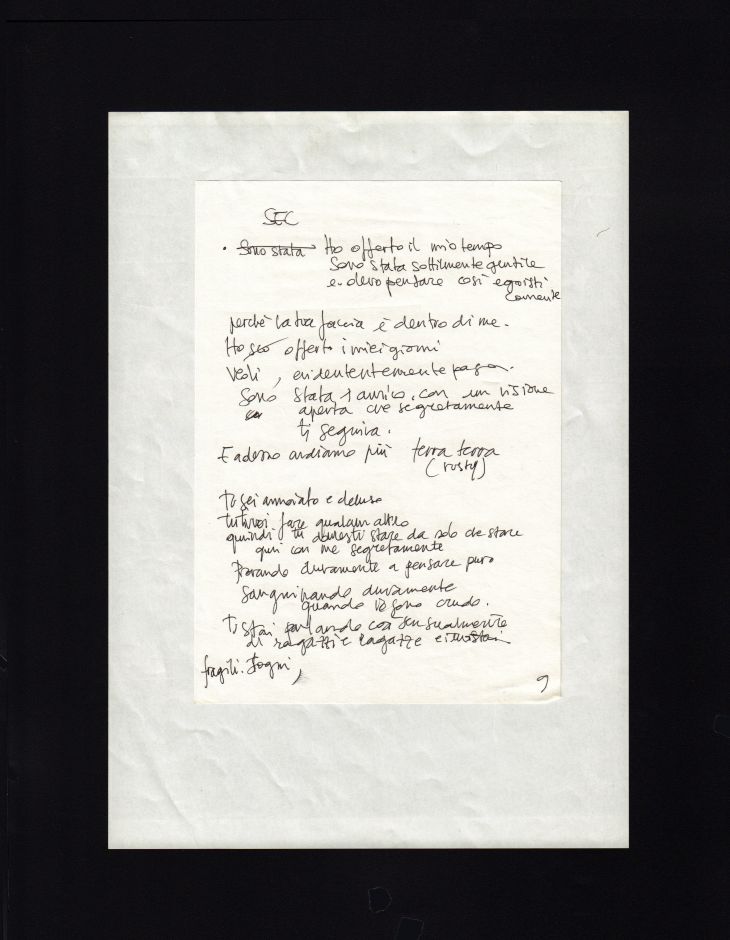 SEC
· Sono stata Ho offerto il mio tempo
Sono stata sottilmente gentile
e devo pensare così egoisti
camente
perchè la tua faccia è dentro di me.
Ho offerto i miei giorni
Vedi, evidentemente
Sono stata 1 amico, con un visione
aperta che segretamente
ti seguiva.
E adesso andiamo più terra terra
(rusty)
Ti sei annoiato e deluso
Tu vuoi fare qualcun altro
quindi tu dovresti stare da solo che stare
qui con me segretamente
Provando duramente a pensare puro
Sanguinando duramente
quando io sono crudo.
Ti stai parlando così sensualmente
di ragazzi e ragazze e
fragili. Sogni,
9